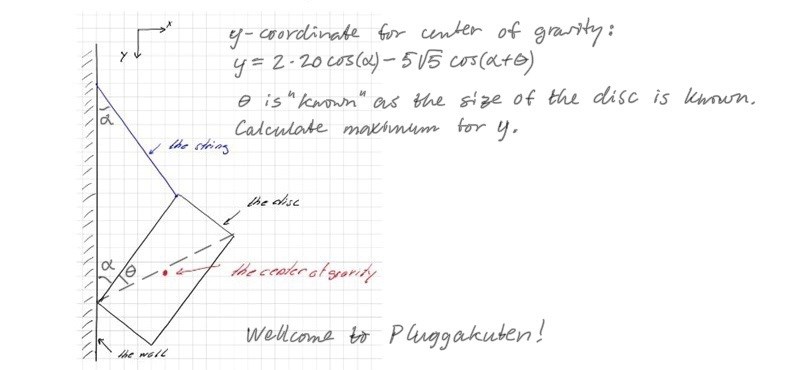 x
y
y-coordinate for center of gravity:
y = 2·20 cos(α) – 5√5 cos(α+θ)
θ is "known" as the size of the disc is known.
Calculate maximum for y.
α
the string
the disc
α
θ
the center of gravity
Wellcome to Pluggakuten!
the wall